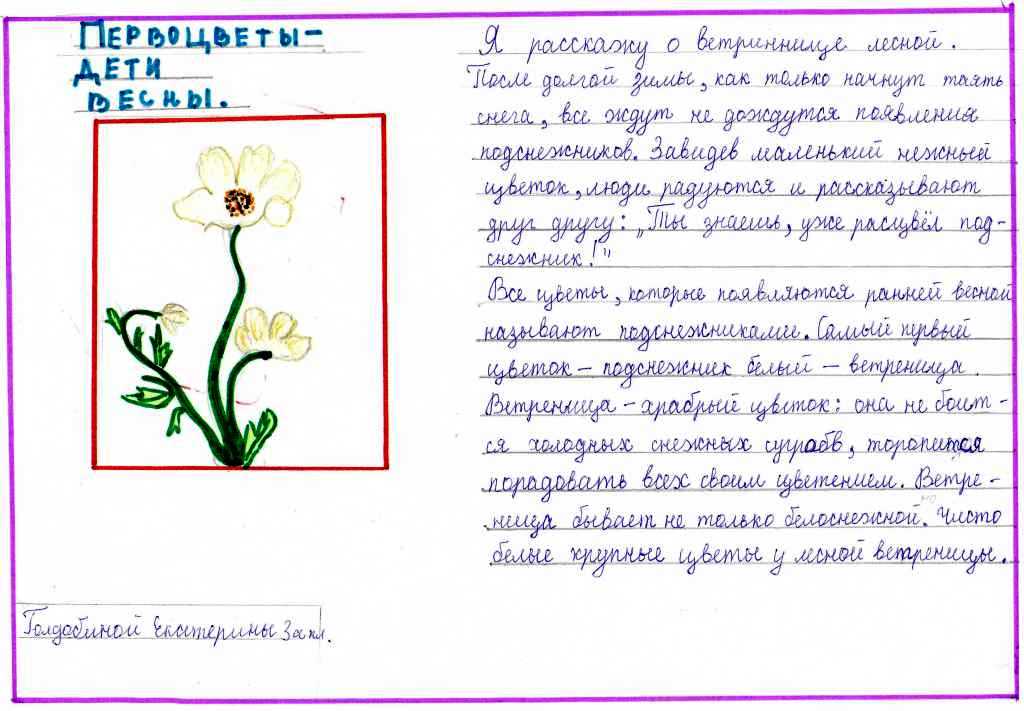 Первоцветы-
дети
весны.
Я расскажу о ветринницe лесной.
После долгой зимы, как только начнут таять
снега, все ждут не дождутся появления
подснежников. Завидев маленький нежный
цветок, люди радуются и рассказывают
друг другу: „Ты знаешь, уже расцвёл под-
снежник!"
Все цветы, которые появляются ранней весной
называют подснежниками. Самый первый
цветок - подснежник белый - ветреница.
Ветреница - храбрый цветок: она не боит-
ся холодных снежных сугробв, торопится
порадовать всех своим цветением. Ветре-
ница бывает не только белоснежной. Чисто
белые хрупные цветы у лесной ветреницы.
Голдобиной Екатерины 3а кл.